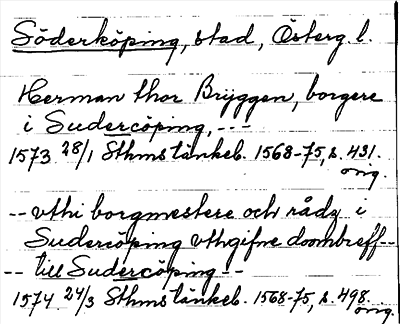 Söderköping, stad, Österg. l.
Herman thor Bryggen, borgere
i Sudercöping, ---
1573 28/1 Sthms tänkeb. 1568-75, s. 431.
orig.
-- vthi borgmestere och rådz i
Sudercöping vthgifne doombreff --
-- till Sudercöping --
1574 24/3 Sthms tänkeb. 1568-75, s. 498.
orig.